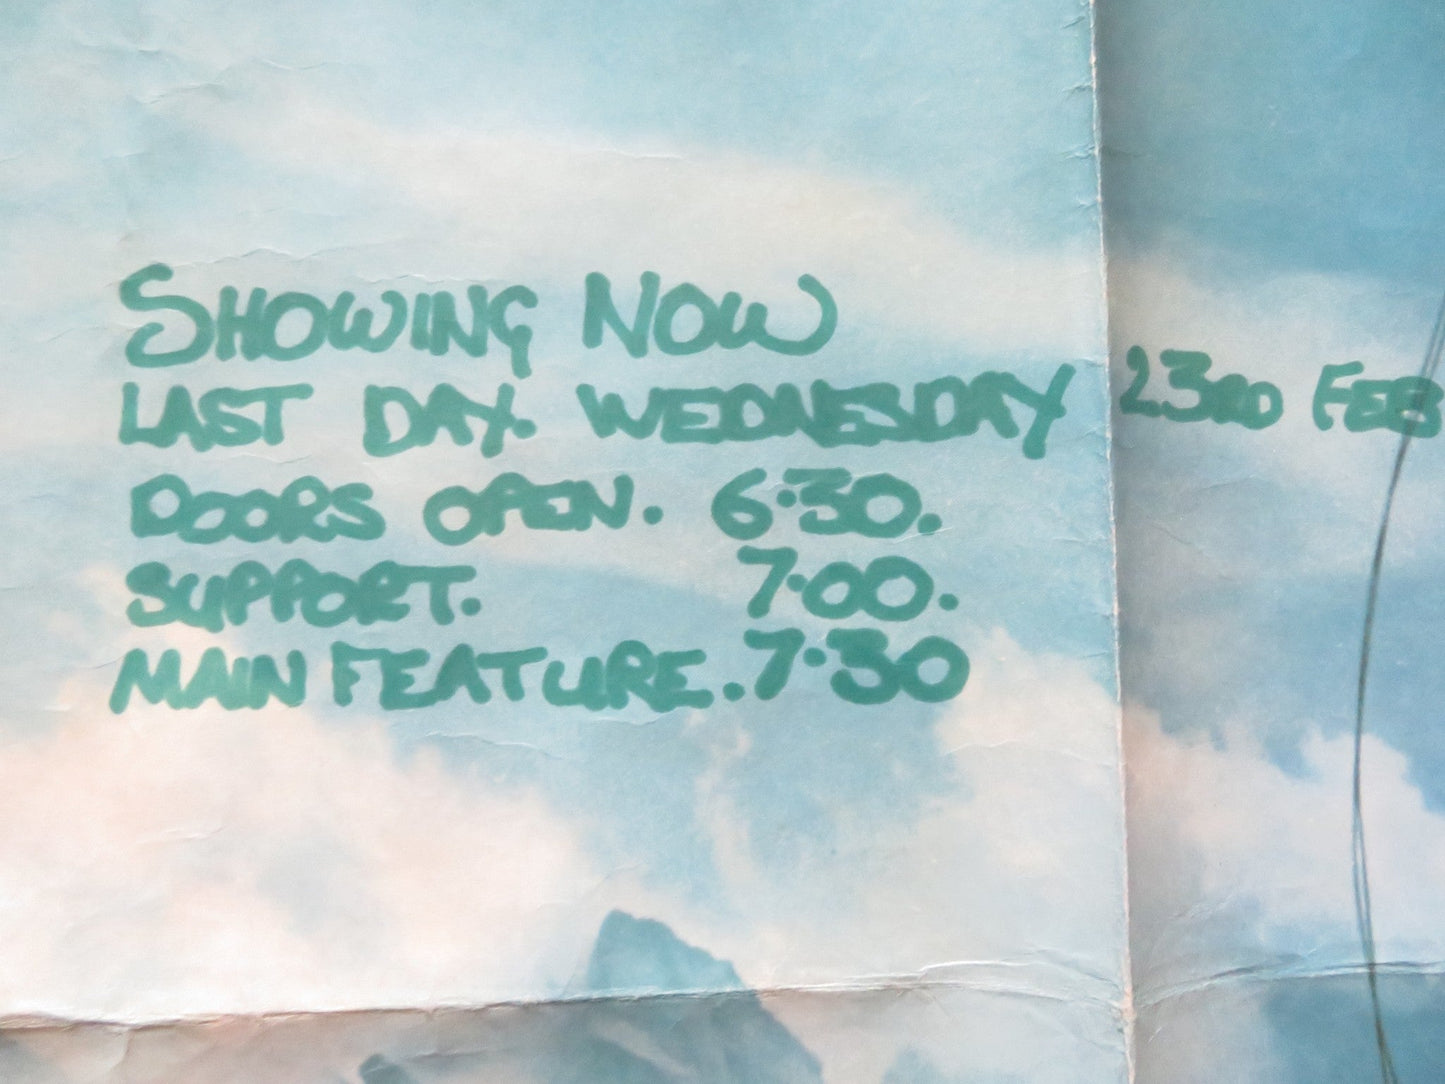 SHOWING NOW
LAST DAY. WEDNESDAY 23RD FEB
DOORS OPEN. 6·30.
SUPPORT. 7·00.
MAIN FEATURE. 7·30